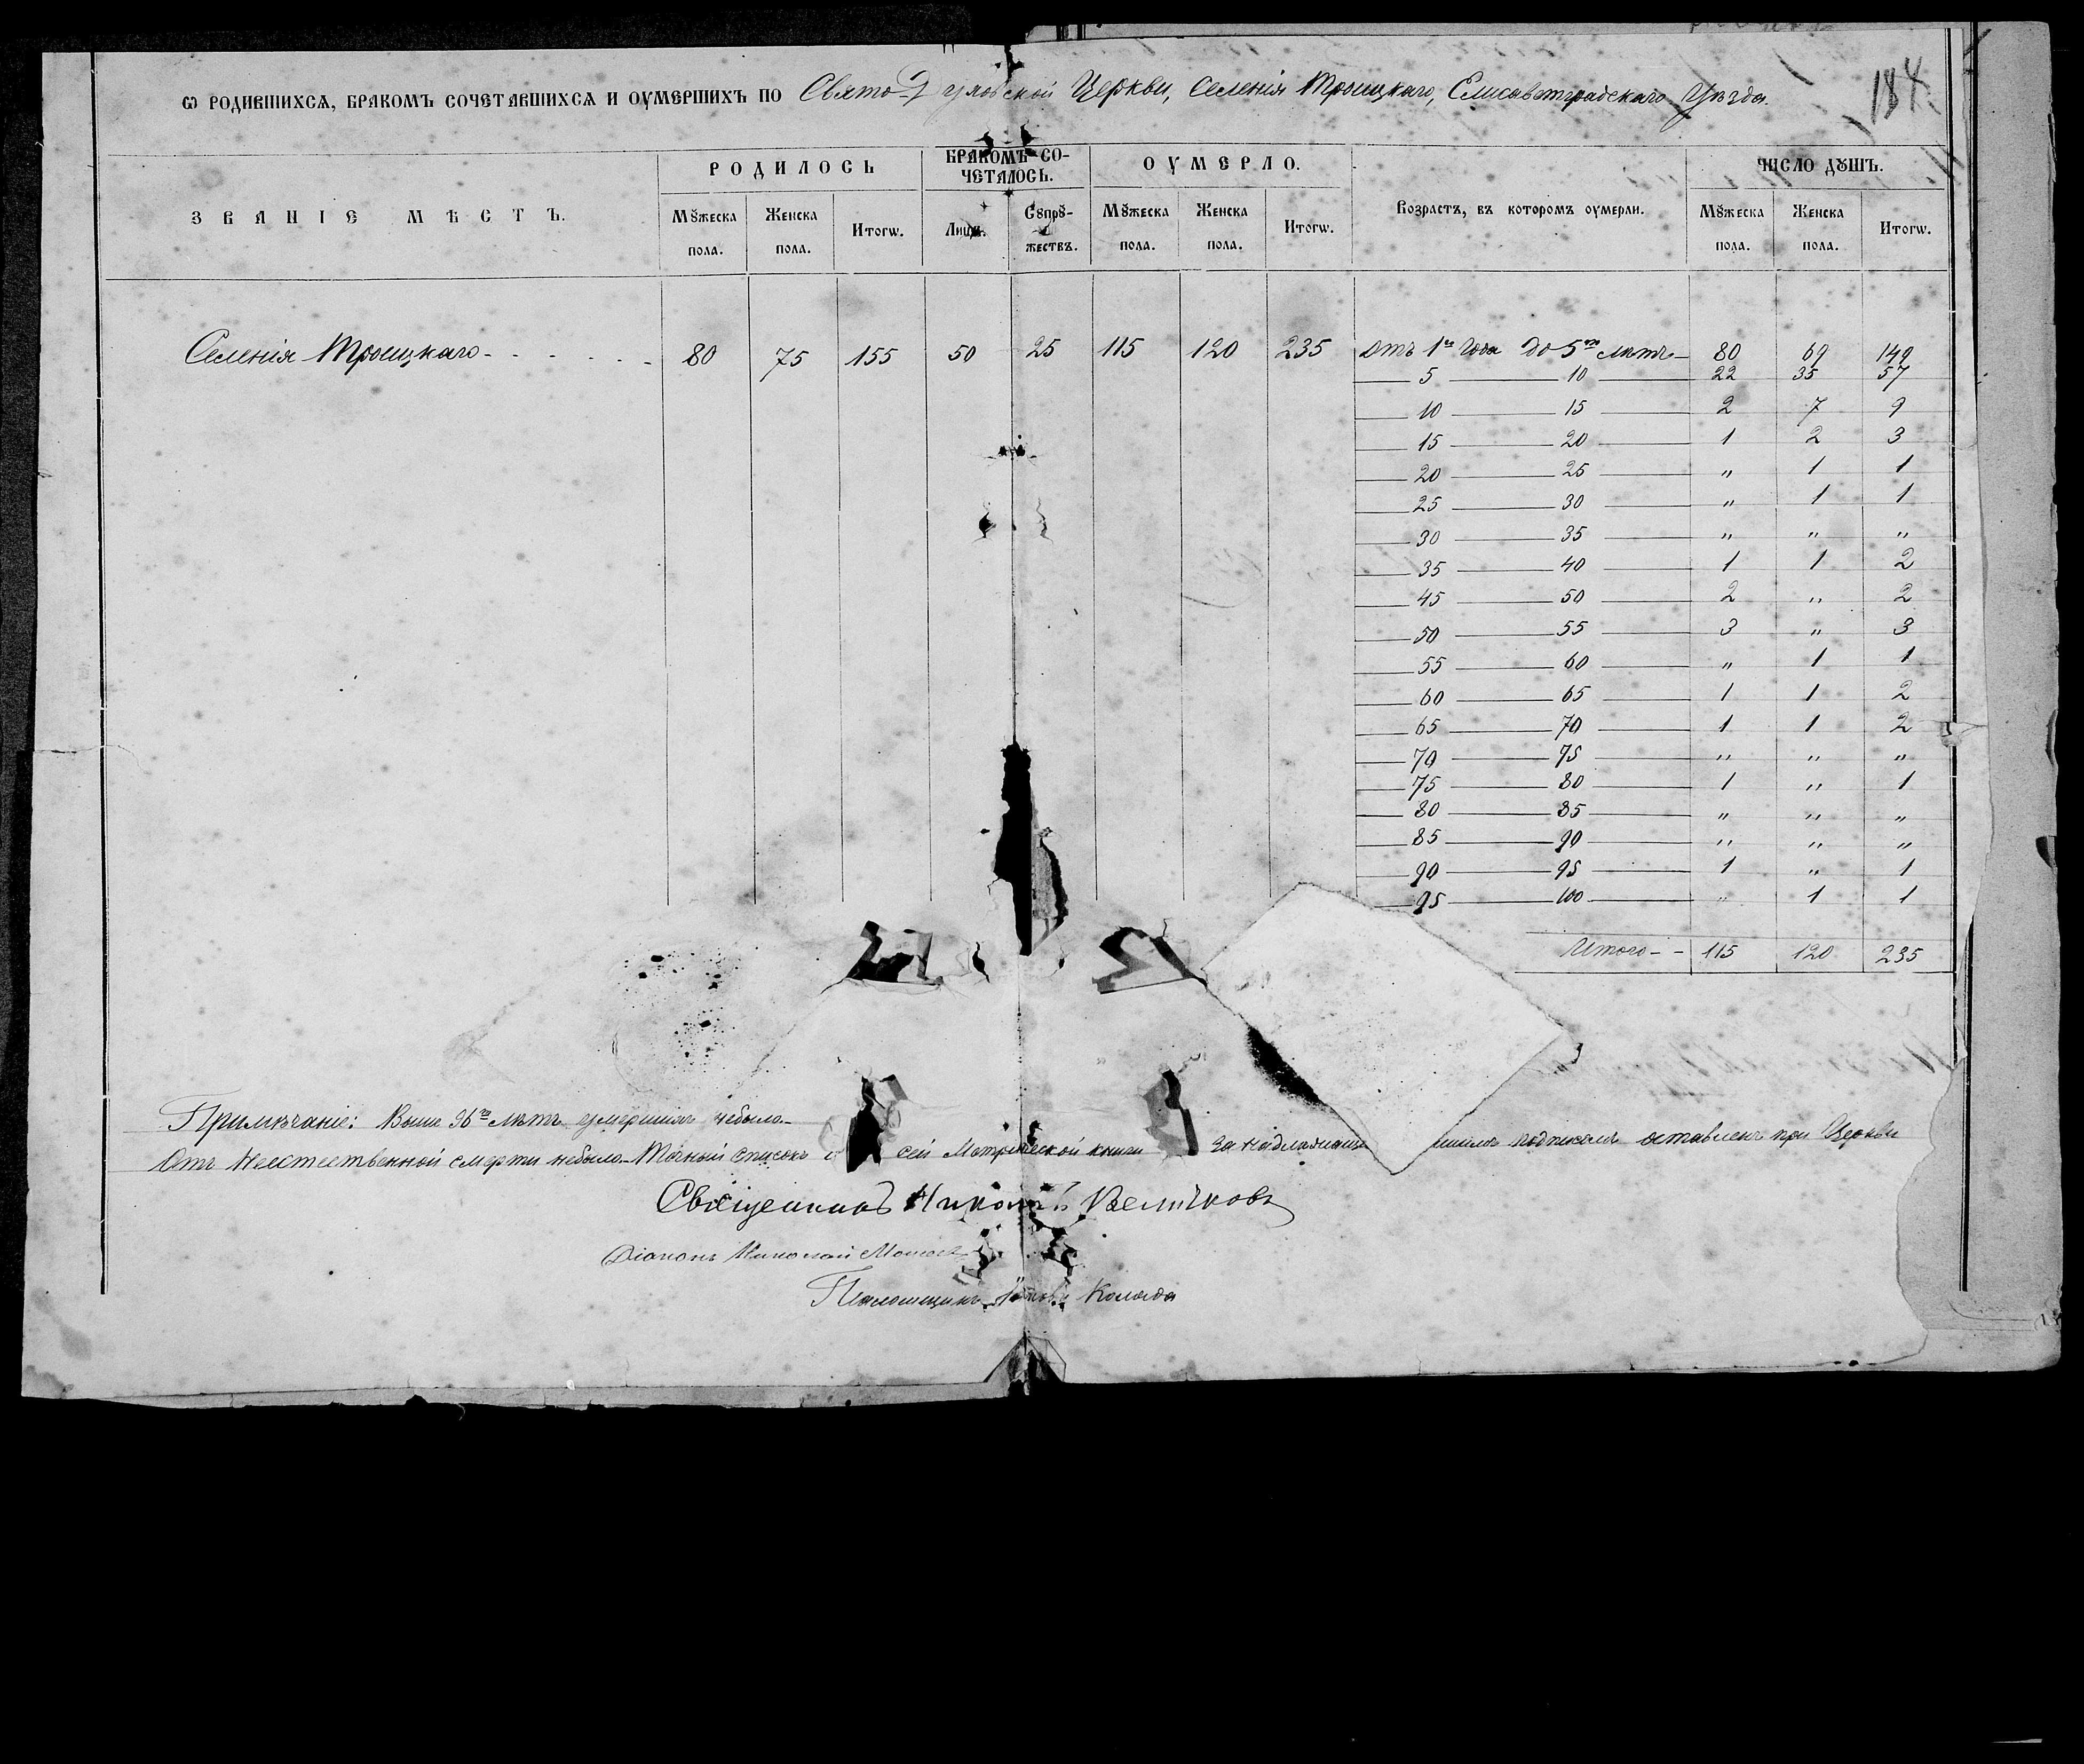 Ѡ РОДИВШИХСѦ, БРАКОМЪ СОЧЕТАВШИХСѦ И ОУМЕРШИХЪ ПО Свято-Духовской Церкви, Селенія Троицкаго, Елисаветградскаго Уѣзда.
184.
ЗВАНІЕ МѢСТЪ.
РОДИЛОСЬ
БРАКОМЪ СО-
ЧЕТАЛОСЬ.
ОУМЕРЛО.
Возрастъ, въ которомъ оумерли.
ЧИСЛО ДꙊШЪ.
Мꙋжеска пола. Женска пола. Итогѡ. Лицъ. Сꙋпрꙋ-жествъ. Мꙋжеска пола. Женска пола. Итогѡ. Мꙋжеска пола. Женска пола. Итогѡ.
Селенія Троицкаго 80 75 155 50 25 115 120 235 Отъ 1го Года До 5ти лѣтъ 80 69 149
5 10 22 35 57
10 15 2 7 9
15 20 1 2 3
20 25 " 1 1
25 30 " 1 1
30 35 " " "
35 40 1 1 2
45 50 2 " 2
50 55 3 " 3
55 60 " 1 1
60 65 1 1 2
65 70 1 1 2
70 75 " " "
75 80 1 " 1
80 85 " " "
85 90 " " "
90 95 1 " 1
95 100 " 1 1
Итого 115 120 235
Примѣчаніе: Выше 96ти лѣтъ умершихъ небыло.
Отъ Неестественной смерти небыло. Точный списокъ сей Метрической книги за надлежаще подписомъ оставленъ при Церкви
Священникъ Величковъ
Діаконъ Николай
Псаломщикъ Коляда